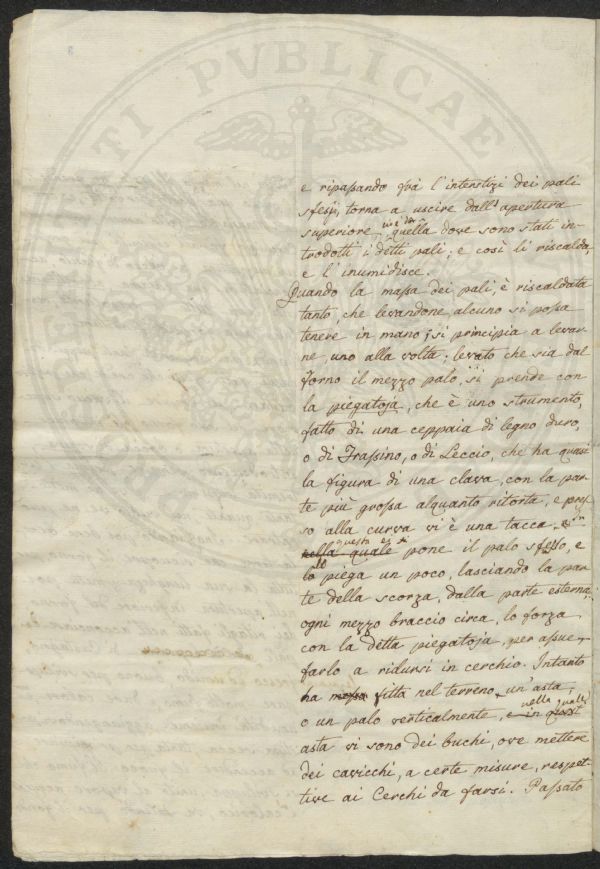 TI PVBLICAE
e ripassando frà l'interstizi dei pali
sfessi, torna a uscire dall'apertura
superiore, quella dove sono stati in-
trodotti i detti pali; e così li riscalda,
e l'inumidisce.
Quando la massa dei pali, è riscaldata
tanto, che levandone, alcuno si possa
tenere in mano, si principia a levar-
ne, uno alla volta; levato che sia dal
forno il mezzo palo, si prende con
la piegatoja, che è uno strumento,
fatto di una ceppaia di legno duro,
o di Frassino, o di Leccio, che ha quasi
la figura di una clava, con la par-
te più grossa alquanto ritorta, e pres-
so alla curva vi è una tacca, e in
questa si
nella quale pone il palo sfesso, e
lo piega un poco, lasciando la par-
te della scorza, dalla parte esterna,
ogni mezzo braccio circa, lo forza
con la detta piegatoja, per assue-
farlo a ridursi in cerchio. Intanto
ha messa fitta nel terreno, un'asta,
nella quale
o un palo verticalmente, e in quest
asta vi sono dei buchi, ove mettere
dei cavicchi, a certe misure, respet-
tive ai Cerchi da farsi. Passato